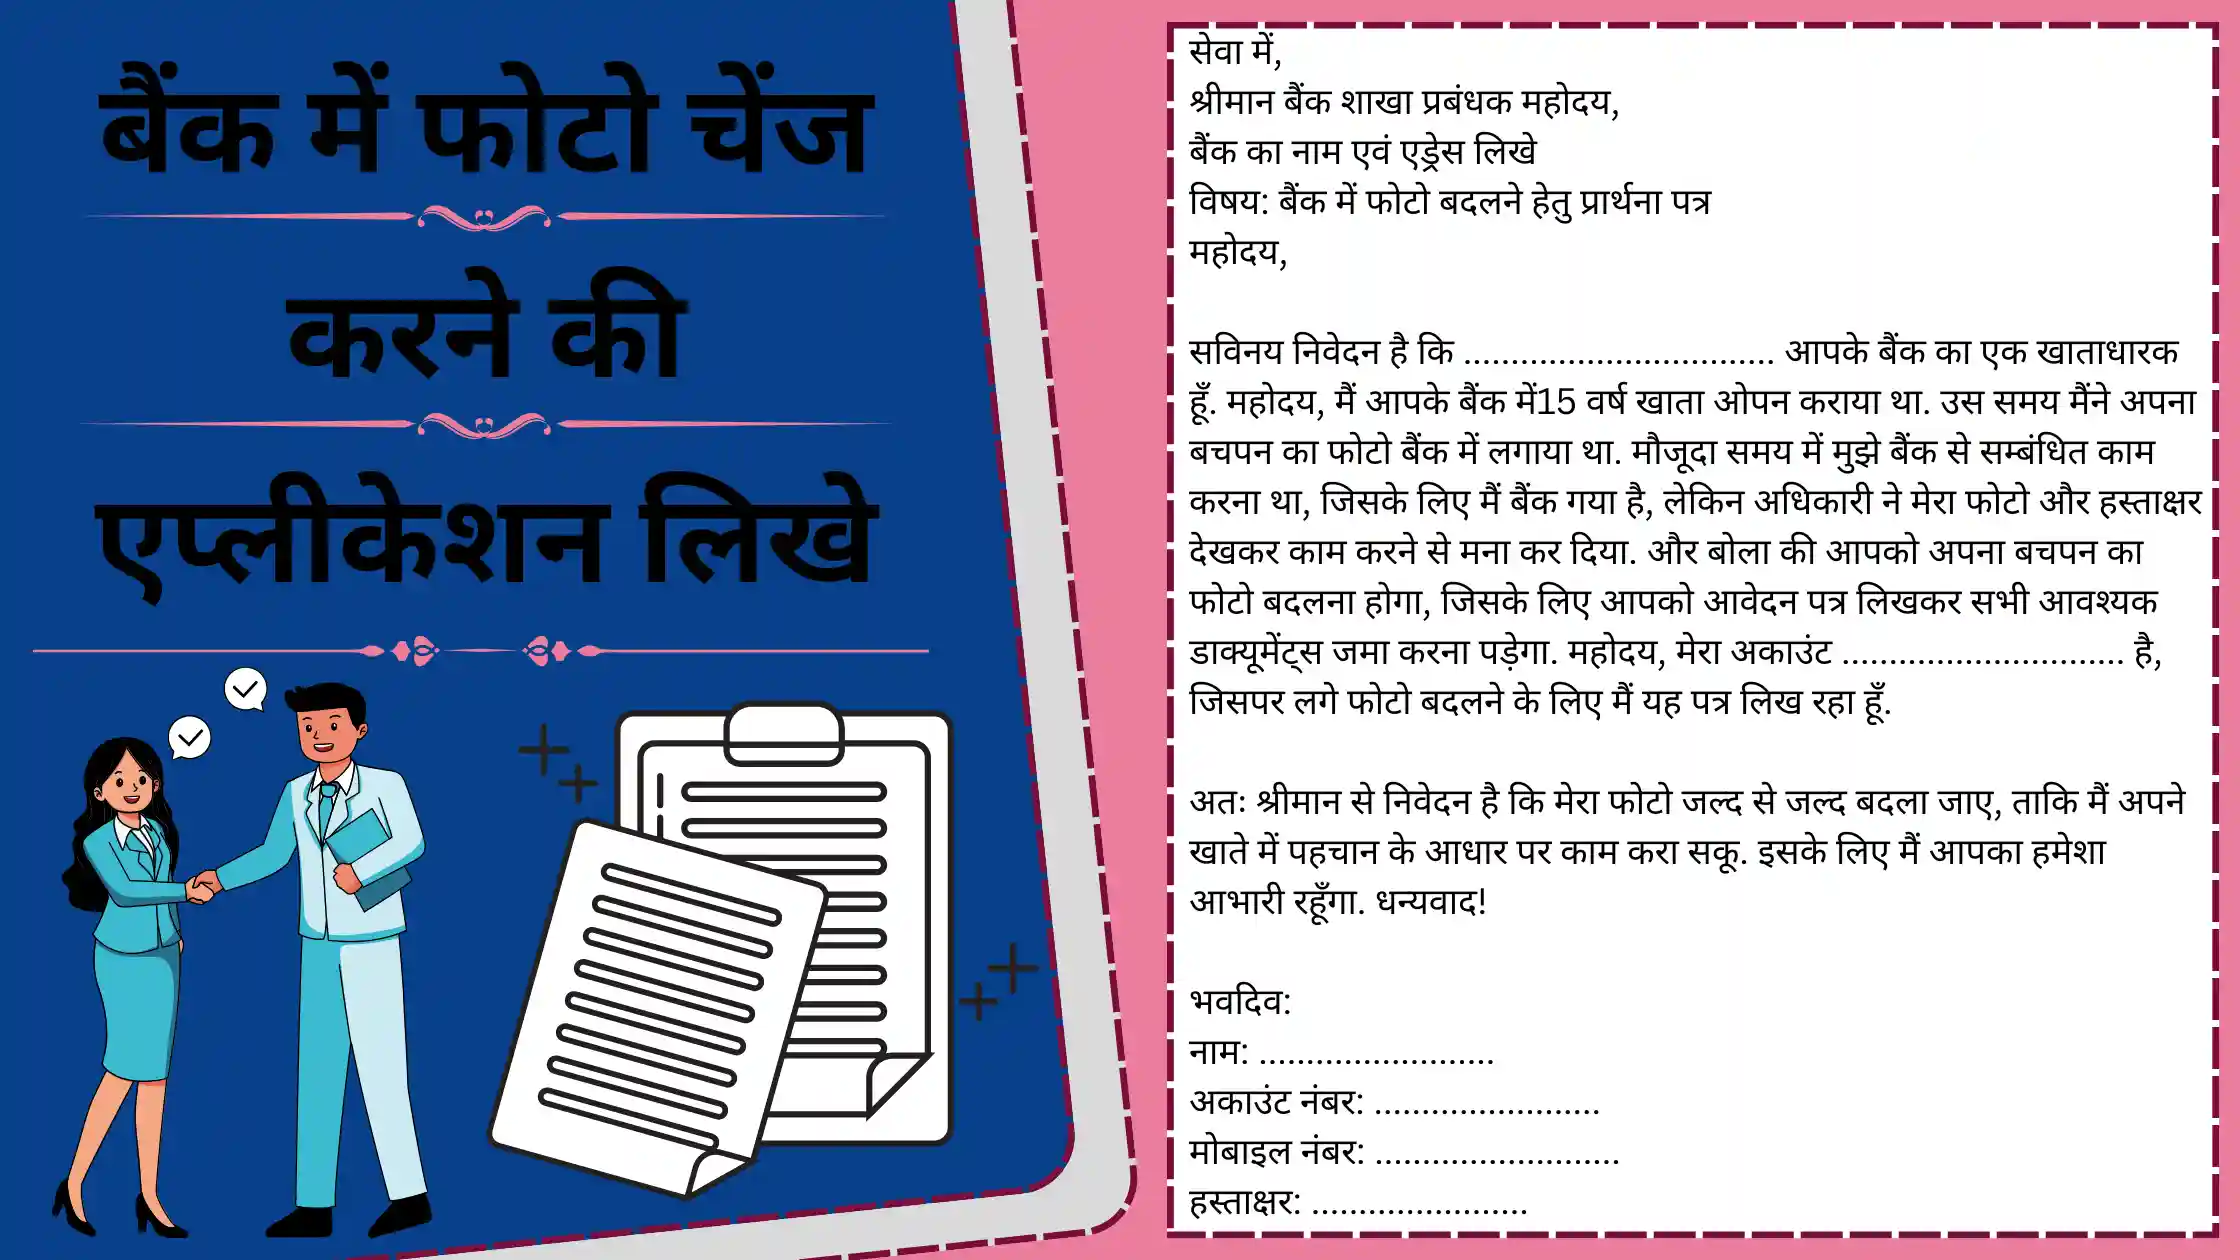 बैंक में फोटो चेंज
करने की
एप्लीकेशन लिखे
सेवा में,
श्रीमान बैंक शाखा प्रबंधक महोदय,
बैंक का नाम एवं एड्रेस लिखे
विषय: बैंक में फोटो बदलने हेतु प्रार्थना पत्र
महोदय,
सविनय निवेदन है कि ................................. आपके बैंक का एक खाताधारक
हूँ. महोदय, मैं आपके बैंक में15 वर्ष खाता ओपन कराया था. उस समय मैंने अपना
बचपन का फोटो बैंक में लगाया था. मौजूदा समय में मुझे बैंक से सम्बंधित काम
करना था, जिसके लिए मैं बैंक गया है, लेकिन अधिकारी ने मेरा फोटो और हस्ताक्षर
देखकर काम करने से मना कर दिया. और बोला की आपको अपना बचपन का
फोटो बदलना होगा, जिसके लिए आपको आवेदन पत्र लिखकर सभी आवश्यक
डाक्यूमेंट्स जमा करना पड़ेगा. महोदय, मेरा अकाउंट .............................. है,
जिसपर लगे फोटो बदलने के लिए मैं यह पत्र लिख रहा हूँ.
अतः श्रीमान से निवेदन है कि मेरा फोटो जल्द से जल्द बदला जाए, ताकि मैं अपने
खाते में पहचान के आधार पर काम करा सकू. इसके लिए मैं आपका हमेशा
आभारी रहूँगा. धन्यवाद!
भवदिव:
नाम: .........................
अकाउंट नंबर: ........................
मोबाइल नंबर: ..........................
हस्ताक्षर: .......................